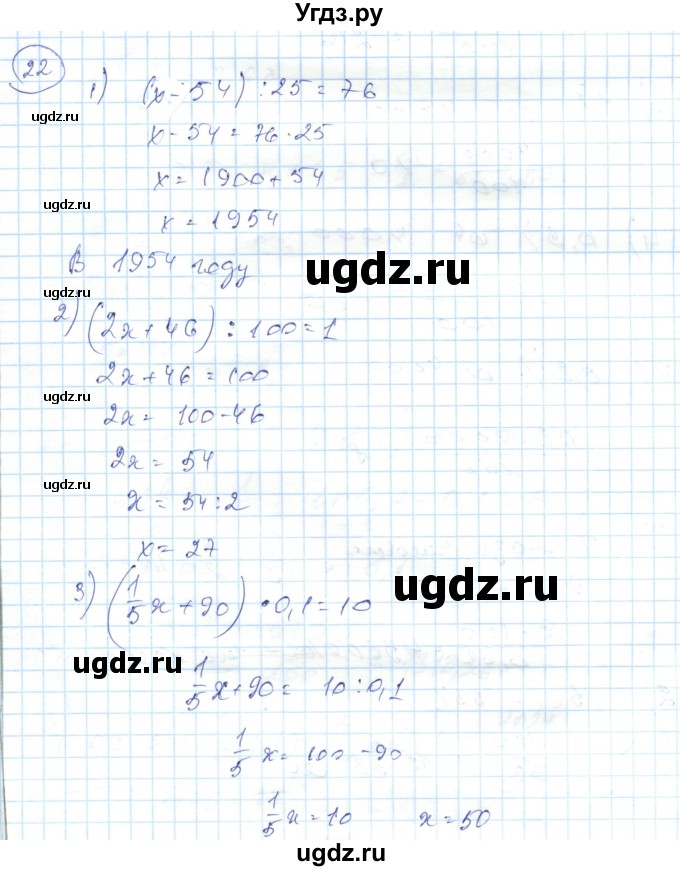 Угдз.ру
22
ugdz.ru
1) (x - 54) : 25 = 76
x - 54 = 76 · 25
ugdz.ru
x = 1900 + 54
ugdz.ru
x = 1954
В 1954 году
ugdz.ru
ugdz.ru
2) (2x + 46) : 100 = 1
2x + 46 = 100
ugdz.ru
2x = 100 - 46
2x = 54
ugdz.ru
x = 54 : 2
x = 27
3) (1/5 x + 90) · 0,1 = 10
ugdz.ru
ugdz.ru
1/5 x + 90 = 10 : 0,1
1/5 x = 100 - 90
1/5 x = 10 x = 50
ugdz.ru